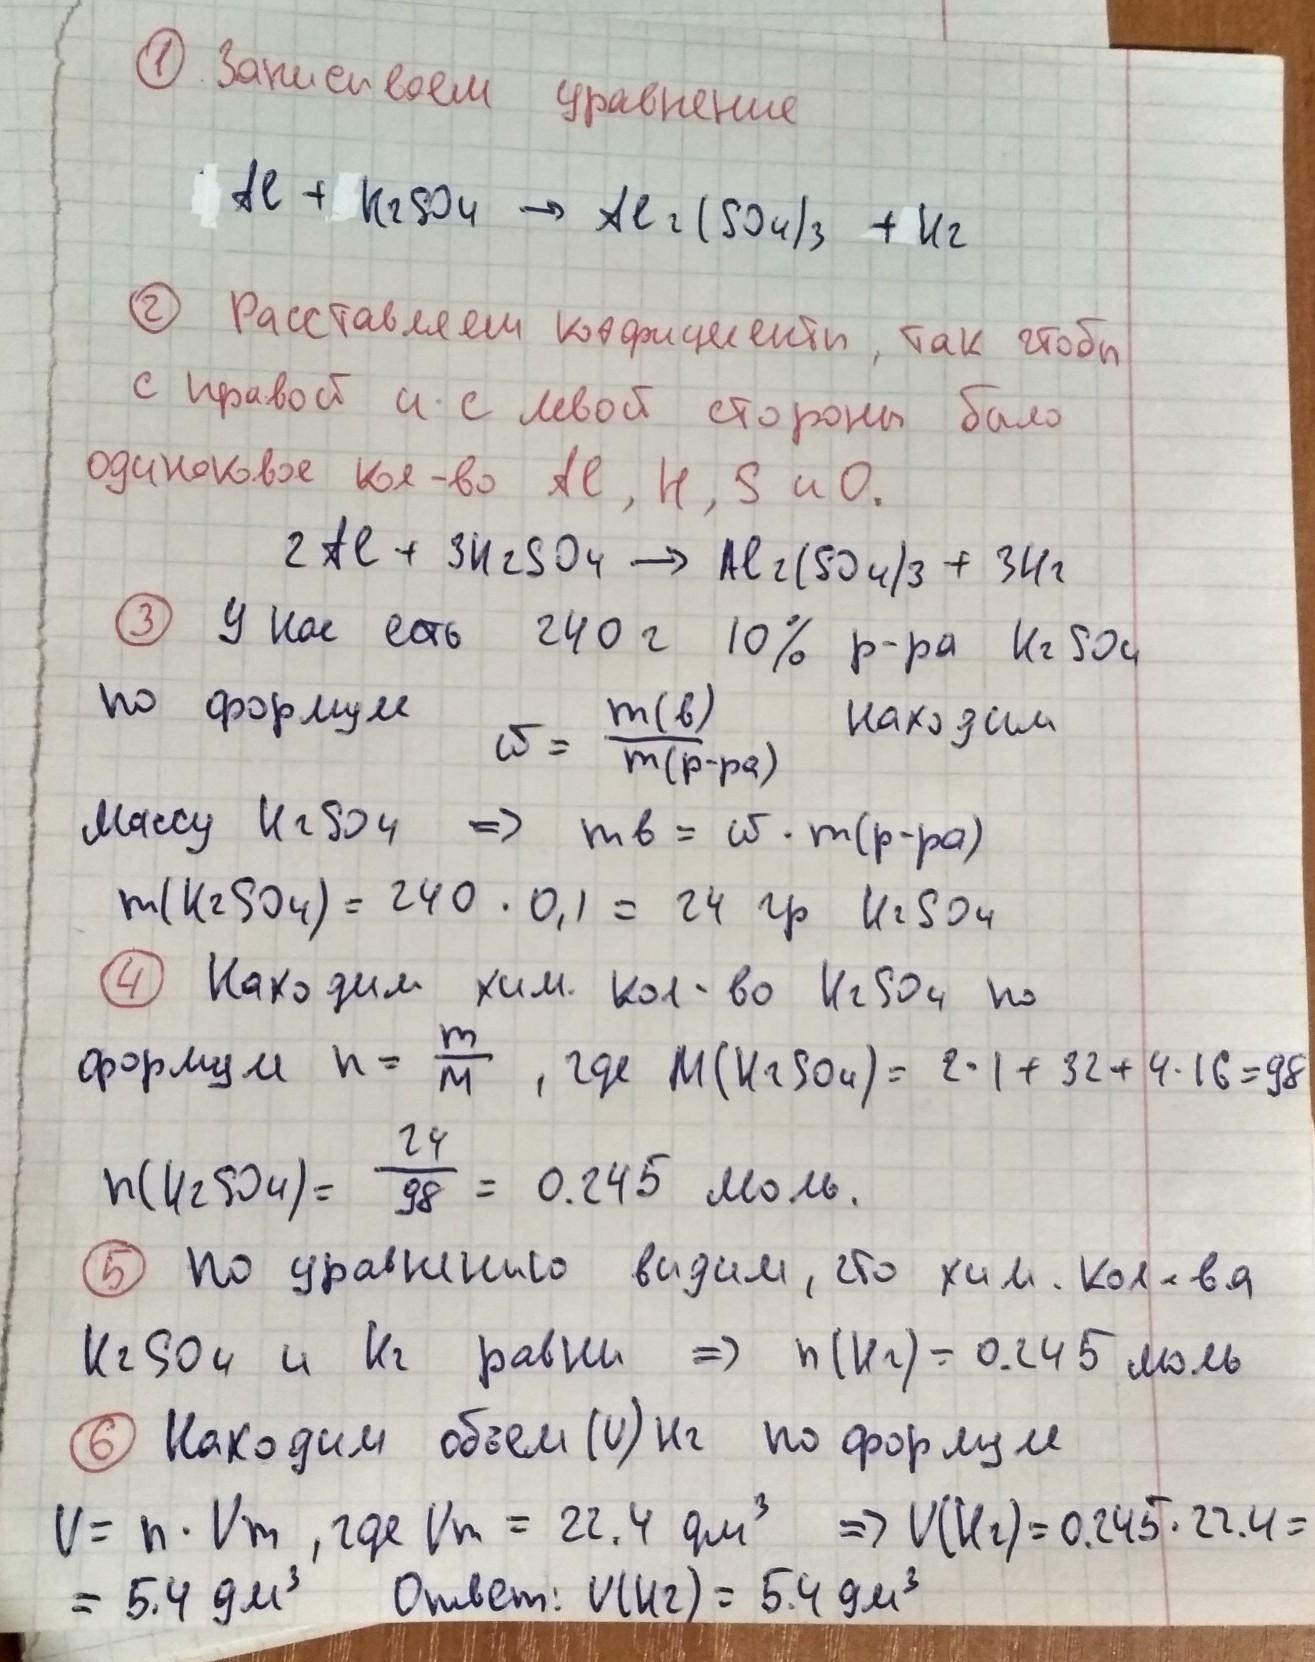 ① Записываем уравнение
Al + H₂SO₄ → Al₂(SO₄)₃ + H₂
② Расставляем коэфициенты, так чтобы
с правой и с левой стороны было
одинаковое кол-во Al, H, S и O.
2Al + 3H₂SO₄ → Al₂(SO₄)₃ + 3H₂
③ У нас есть 240 г 10% р-ра H₂SO₄
по формуле ω = m(в)/m(р-ра) находим
массу H₂SO₄ => mв = ω · m(р-ра)
m(H₂SO₄) = 240 · 0,1 = 24 гр H₂SO₄
④ Находим хим. кол-во H₂SO₄ по
формуле n = m/M, где M(H₂SO₄) = 2·1 + 32 + 4·16 = 98
n(H₂SO₄) = 24/98 = 0.245 моль.
⑤ По уравнению видим, что хим. кол-ва
H₂SO₄ и H₂ равны => n(H₂) = 0.245 моль
⑥ Находим объем (V) H₂ по формуле
V = n · Vm, где Vm = 22.4 дм³ => V(H₂) = 0.245 · 22.4 =
= 5.4 дм³ Ответ: V(H₂) = 5.4 дм³